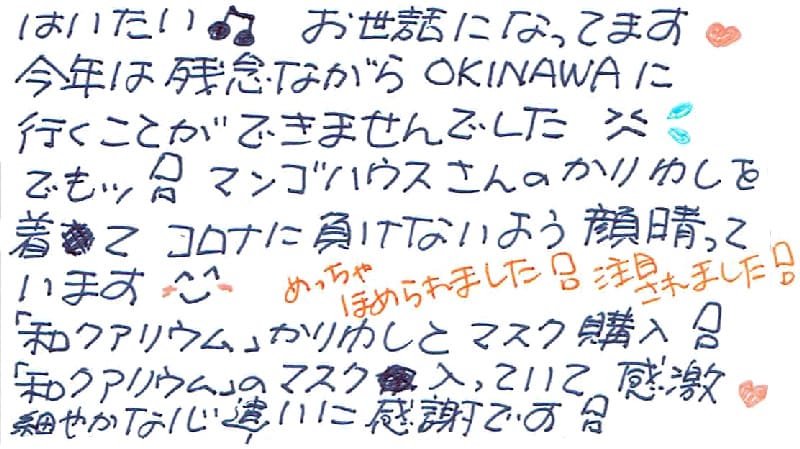 はいたい♫ お世話になってます♥
今年は残念ながらOKINAWAに
行くことができませんでした
でもッ!! マンゴハウスさんのかりゆしを
着て コロナに負けないよう 顔晴って
います^^
めっちゃほめられました!! 注目されました!!
「和クアリウム」かりゆしと マスク購入!!
「和クアリウム」のマスク 入っていて 感激♥
細やかな心遣いに感謝です!!